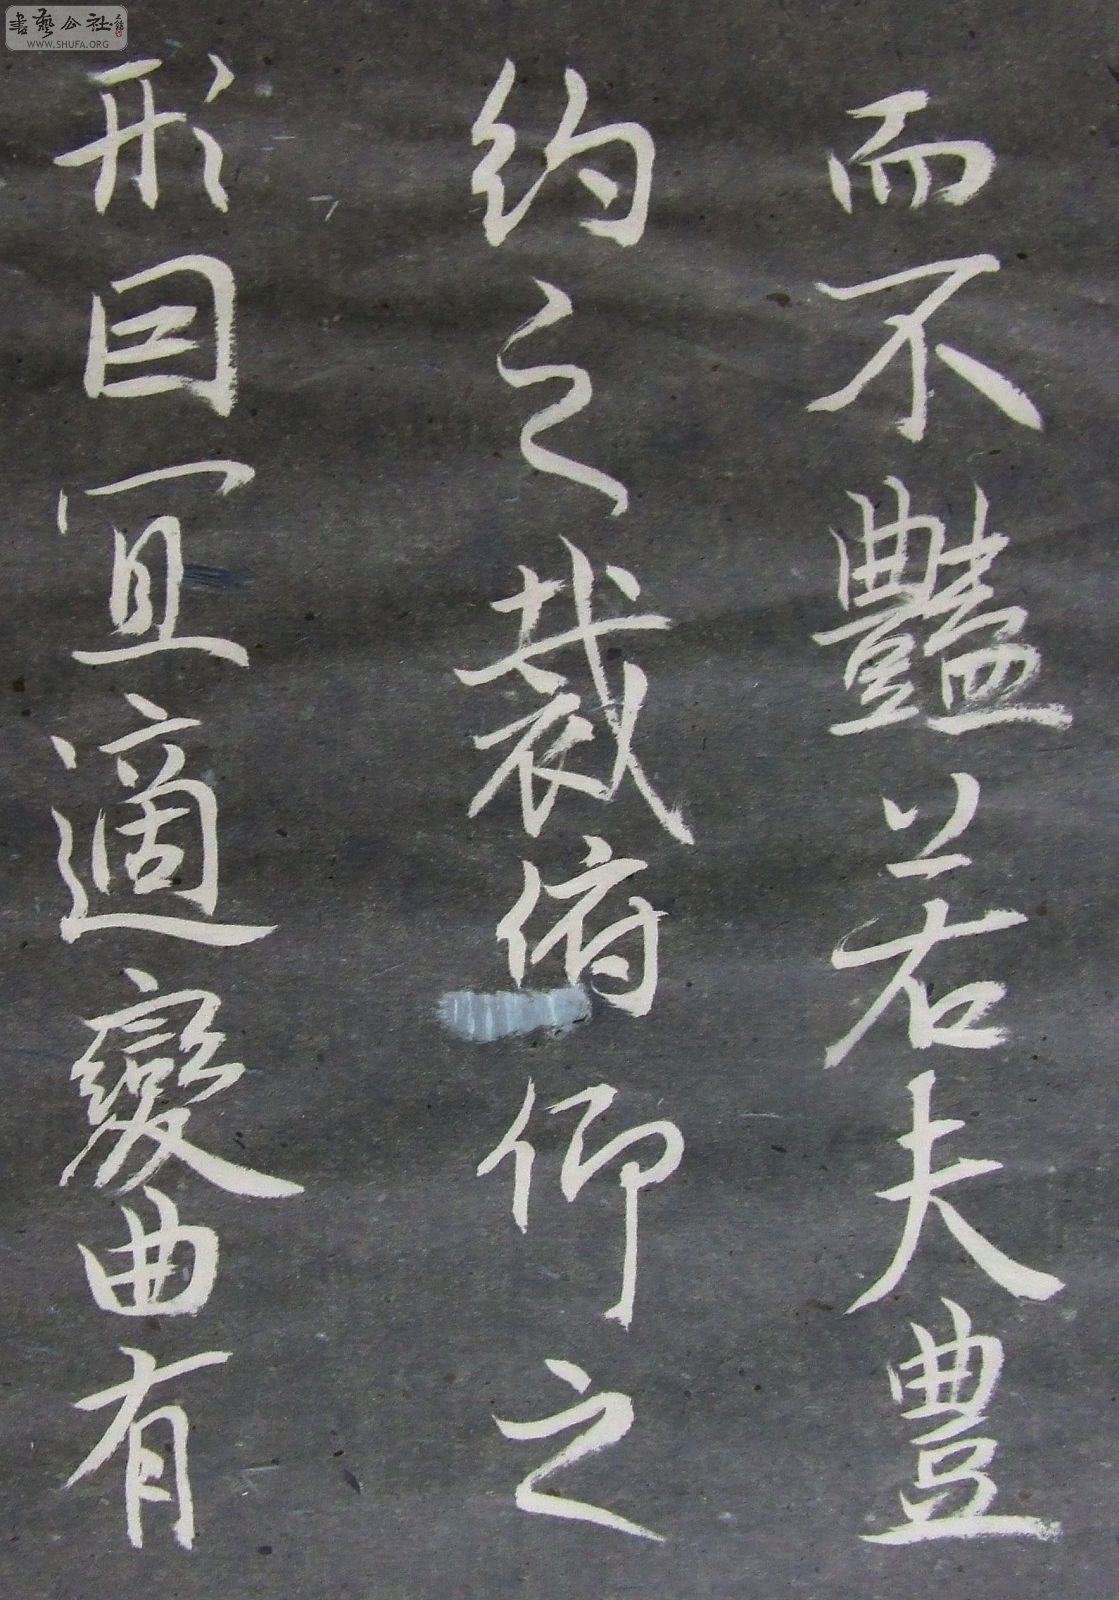 書藝公社
WWW.SHUFA.ORG
而不豔若夫豊
約之裁俯仰之
形因宜適變曲有